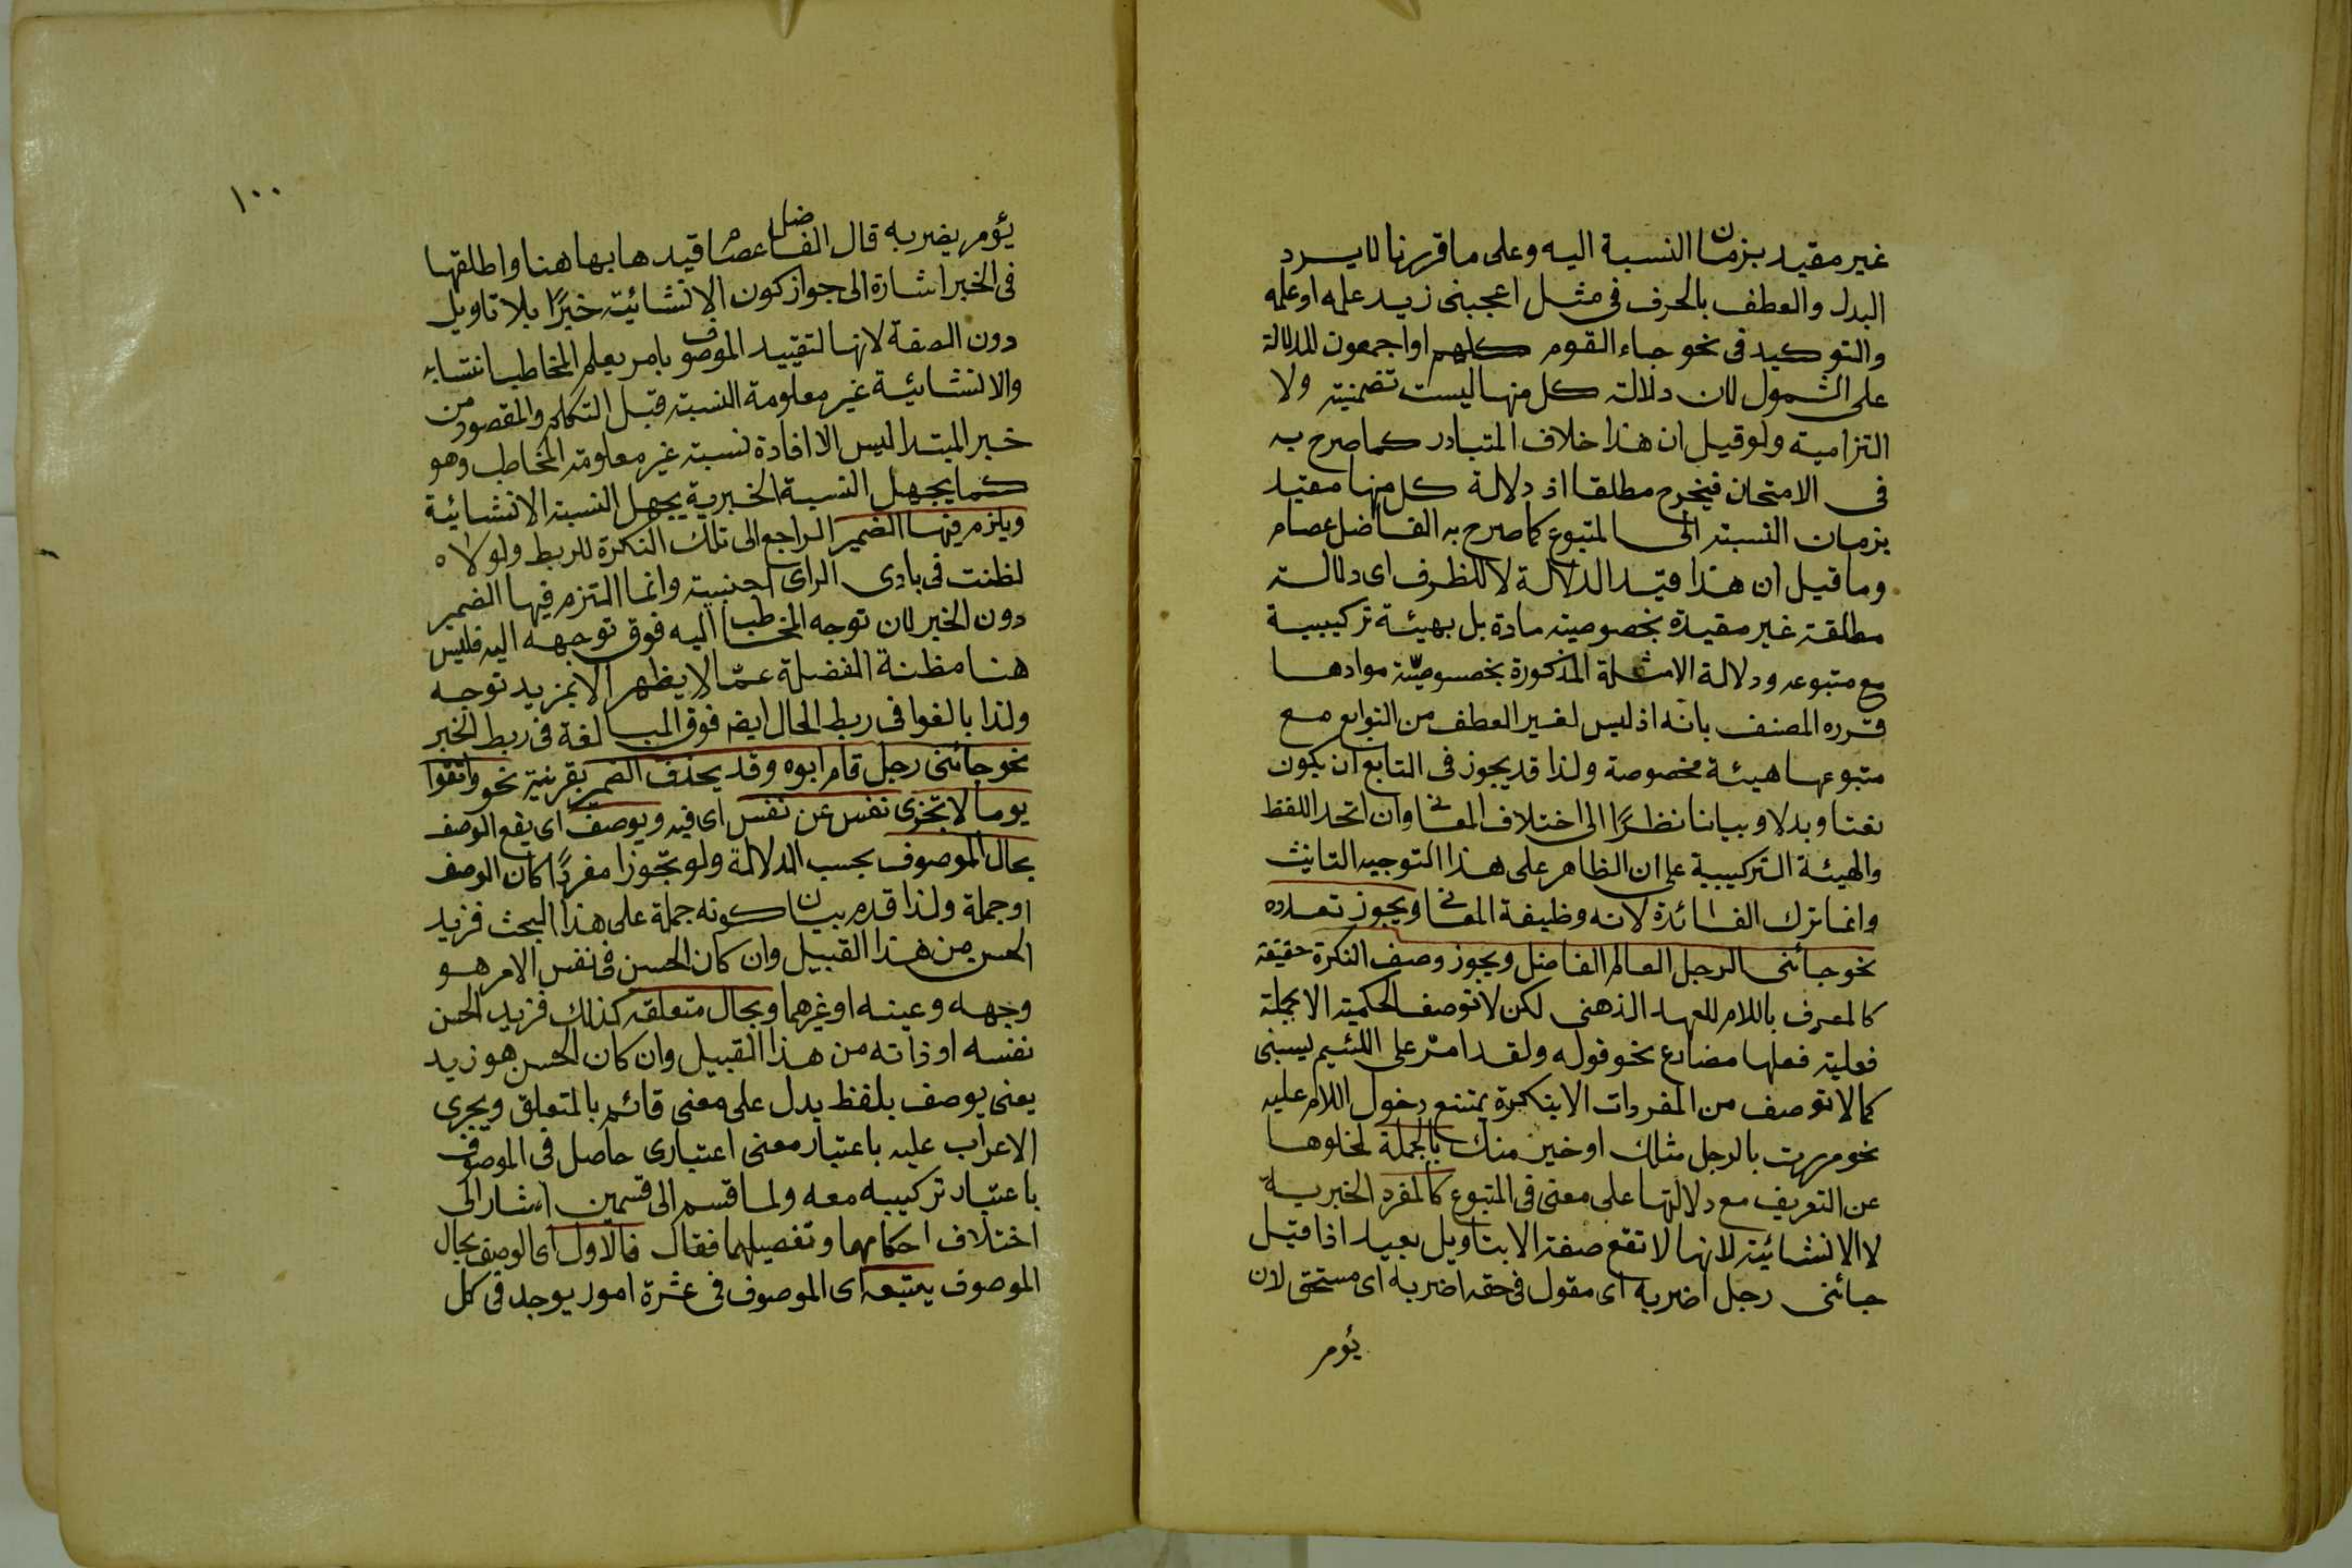 غير مقيد بزمان النسبة اليه وعلى ما قررنا لا يرد
البدل والعطف بالحرف فى مثل اعجبنى زيد علمه او علمه
والتوكيد فى نحو جاء القوم كلهم او اجمعون للدلالة
على الشمول لان دلالة كل منها ليست تضمنية ولا
التزامية ولو قيل ان هذا خلاف المتبادر كما صرح به
فى الامتحان فيخرج مطلقا اذ دلالة كل منها مقيد
بزمان النسبة الى المتبوع كما صرح به الفاضل عصام
وما قيل ان هذا قيد الدلالة لا للظرف اى دلالة
مطلقة غير مقيدة بخصوصية مادة بل بهيئة تركيبية
مع متبوعه ودلالة الامثلة المذكورة بخصوصيّة موادها
قرره المصنف بانه اذ ليس لغير العطف من التوابع مع
متبوعها هيئة مخصوصة ولذا قد يجوز فى التابع ان يكون
نعتا وبدلا وبيانا نظرًا الى اختلاف المعانى وان اتحد اللفظ
والهيئة التركيبية على ان الظاهر على هذا التوجيه التانيث
وانما ترك الفائدة لانه وظيفة المعانى ويجوز تعدده
نحو جائنى الرجل العالم الفاضل ويجوز وصف النكرة حقيقة
كالمعرف باللام للعهد الذهنى لكن لا توصف الحكمية الا بجملة
فعلية فعلها مضارع نحو قوله ولقد امرّ على اللئيم يسبنى
كما لا توصف من المفردات الا بنكرة يمتنع دخول اللام عليه
نحو مررت بالرجل مثلك او خير منك بالجملة لخلوها
عن التعريف مع دلالتها على معنى فى المتبوع كالمفرد الخبرية
لا الانشائية لانها لا تقع صفة الا بتاويل بعيد اذا قيل
جائنى رجل اضربه اى مقول فى حقه اضربه اى مستحق لان
يؤمر
١٠٠
يؤمر بضربه قال الفاضل عصام قيدها بها هنا واطلقها
فى الخبر اشارة الى جواز كون الانشائية خبرًا بلا تاويل
دون الصفة لانها لتقييد الموصوف بامر يعلم المخاطب انتسابه
والانشائية غير معلومة النسبة قبل التكلم والمقصود من
خبر المبتدا ليس الا افادة نسبة غير معلومة المخاطب وهو
كما يجهل النسبة الخبرية يجهل النسبة الانشائية
ويلزم فيها الضمير الراجع الى تلك النكرة للربط ولولاه
لظنت فى بادى الراى اجنبية وانما التزم فيها الضمير
دون الخبر لان توجه المخاطب اليه فوق توجهه اليه فليس
هنا مظنة الفضلة عمّا لا يظهر الا بمزيد توجه
ولذا بالغوا فى ربط الحال ايضا فوق المبالغة فى ربط الخبر
نحو جائنى رجل قام ابوه وقد يحذف الضمير بقرينة نحو واتقوا
يوما لا تجزى نفس عن نفس اى فيه ويوصف اى يقع الوصف
بحال الموصوف بحسب الدلالة ولو تجوزا مفردًا كان الوصف
او جملة ولذا قدم بيان كونه جملة على هذا البحث فزيد
الحسن من هذا القبيل وان كان الحسن فى نفس الامر هو
وجهه وعينه او غيرهما وبحال متعلقه كذلك فزيد الحسن
نفسه او ذاته من هذا القبيل وان كان الحسن هو زيد
يعنى يوصف بلفظ يدل على معنى قائم بالمتعلق ويجرى
الاعراب عليه باعتبار معنى اعتبارى حاصل فى الموصوف
باعتبار تركيبه معه ولما قسم الى قسمين اشار الى
اختلاف احكامهما وتفصيلهما فقال فالاول اى الوصف بحال
الموصوف يتبعه اى الموصوف فى عشرة امور يوجد فى كل